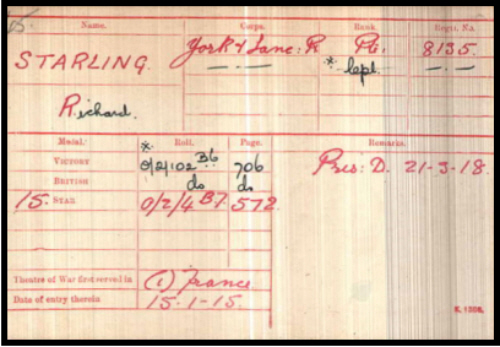 Name. Corps. Rank Regtl. No.
STARLING. York & Lanc: R Pte. 8135.
* Cpl.
Richard.
Medal. Roll. Page. Remarks.
*
VICTORY 0/2/102 B6 706 Pres: D. 21-3-18.
BRITISH do do
15. STAR 0/2/4 B7. 572
Theatre of War first served in (1) France
Date of entry therein 15-1-15.
K. 1380.